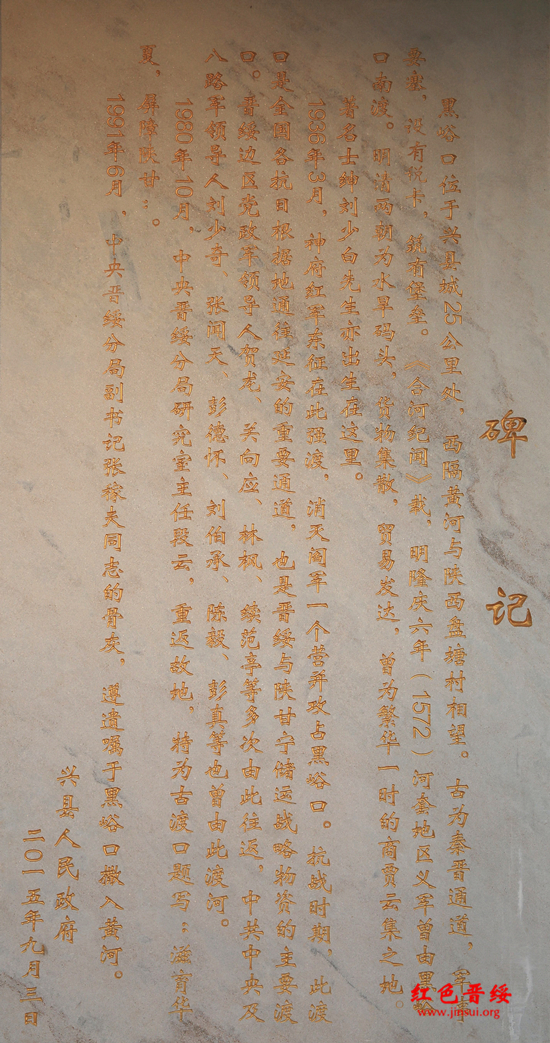 碑记
黑峪口位于兴县城25公里处，西隔黄河与陕西盘塘村相望。古为秦晋通道，军事
要塞，设有税卡，筑有堡垒。《合河纪闻》载，明隆庆六年（1572）河套地区义军曾由黑峪
口南渡。明清两朝为水旱码头，货物集散，贸易发达，曾为繁华一时的商贾云集之地。
著名士绅刘少白先生亦出生在这里。
1936年3月，神府红军东征在此强渡，消灭阎军一个营并攻占黑峪口。抗战时期，此渡
口是全国各抗日根据地通往延安的重要通道，也是晋绥与陕甘宁储运战略物资的主要渡
口。晋绥边区党政军领导人贺龙、关向应、林枫、续范亭等多次由此往返，中共中央及
八路军领导人刘少奇、张闻天、彭德怀、刘伯承、陈毅、彭真等也曾由此渡河。
1980年10月，中央晋绥分局研究室主任段云，重返故地，特为古渡口题写：滋育华
夏，屏障陕甘；。
1991年6月，中央晋绥分局副书记张稼夫同志的骨灰，遵遗嘱于黑峪口撒入黄河。
兴县人民政府
二〇一五年九月三日
红色晋绥
www.jinsui.org